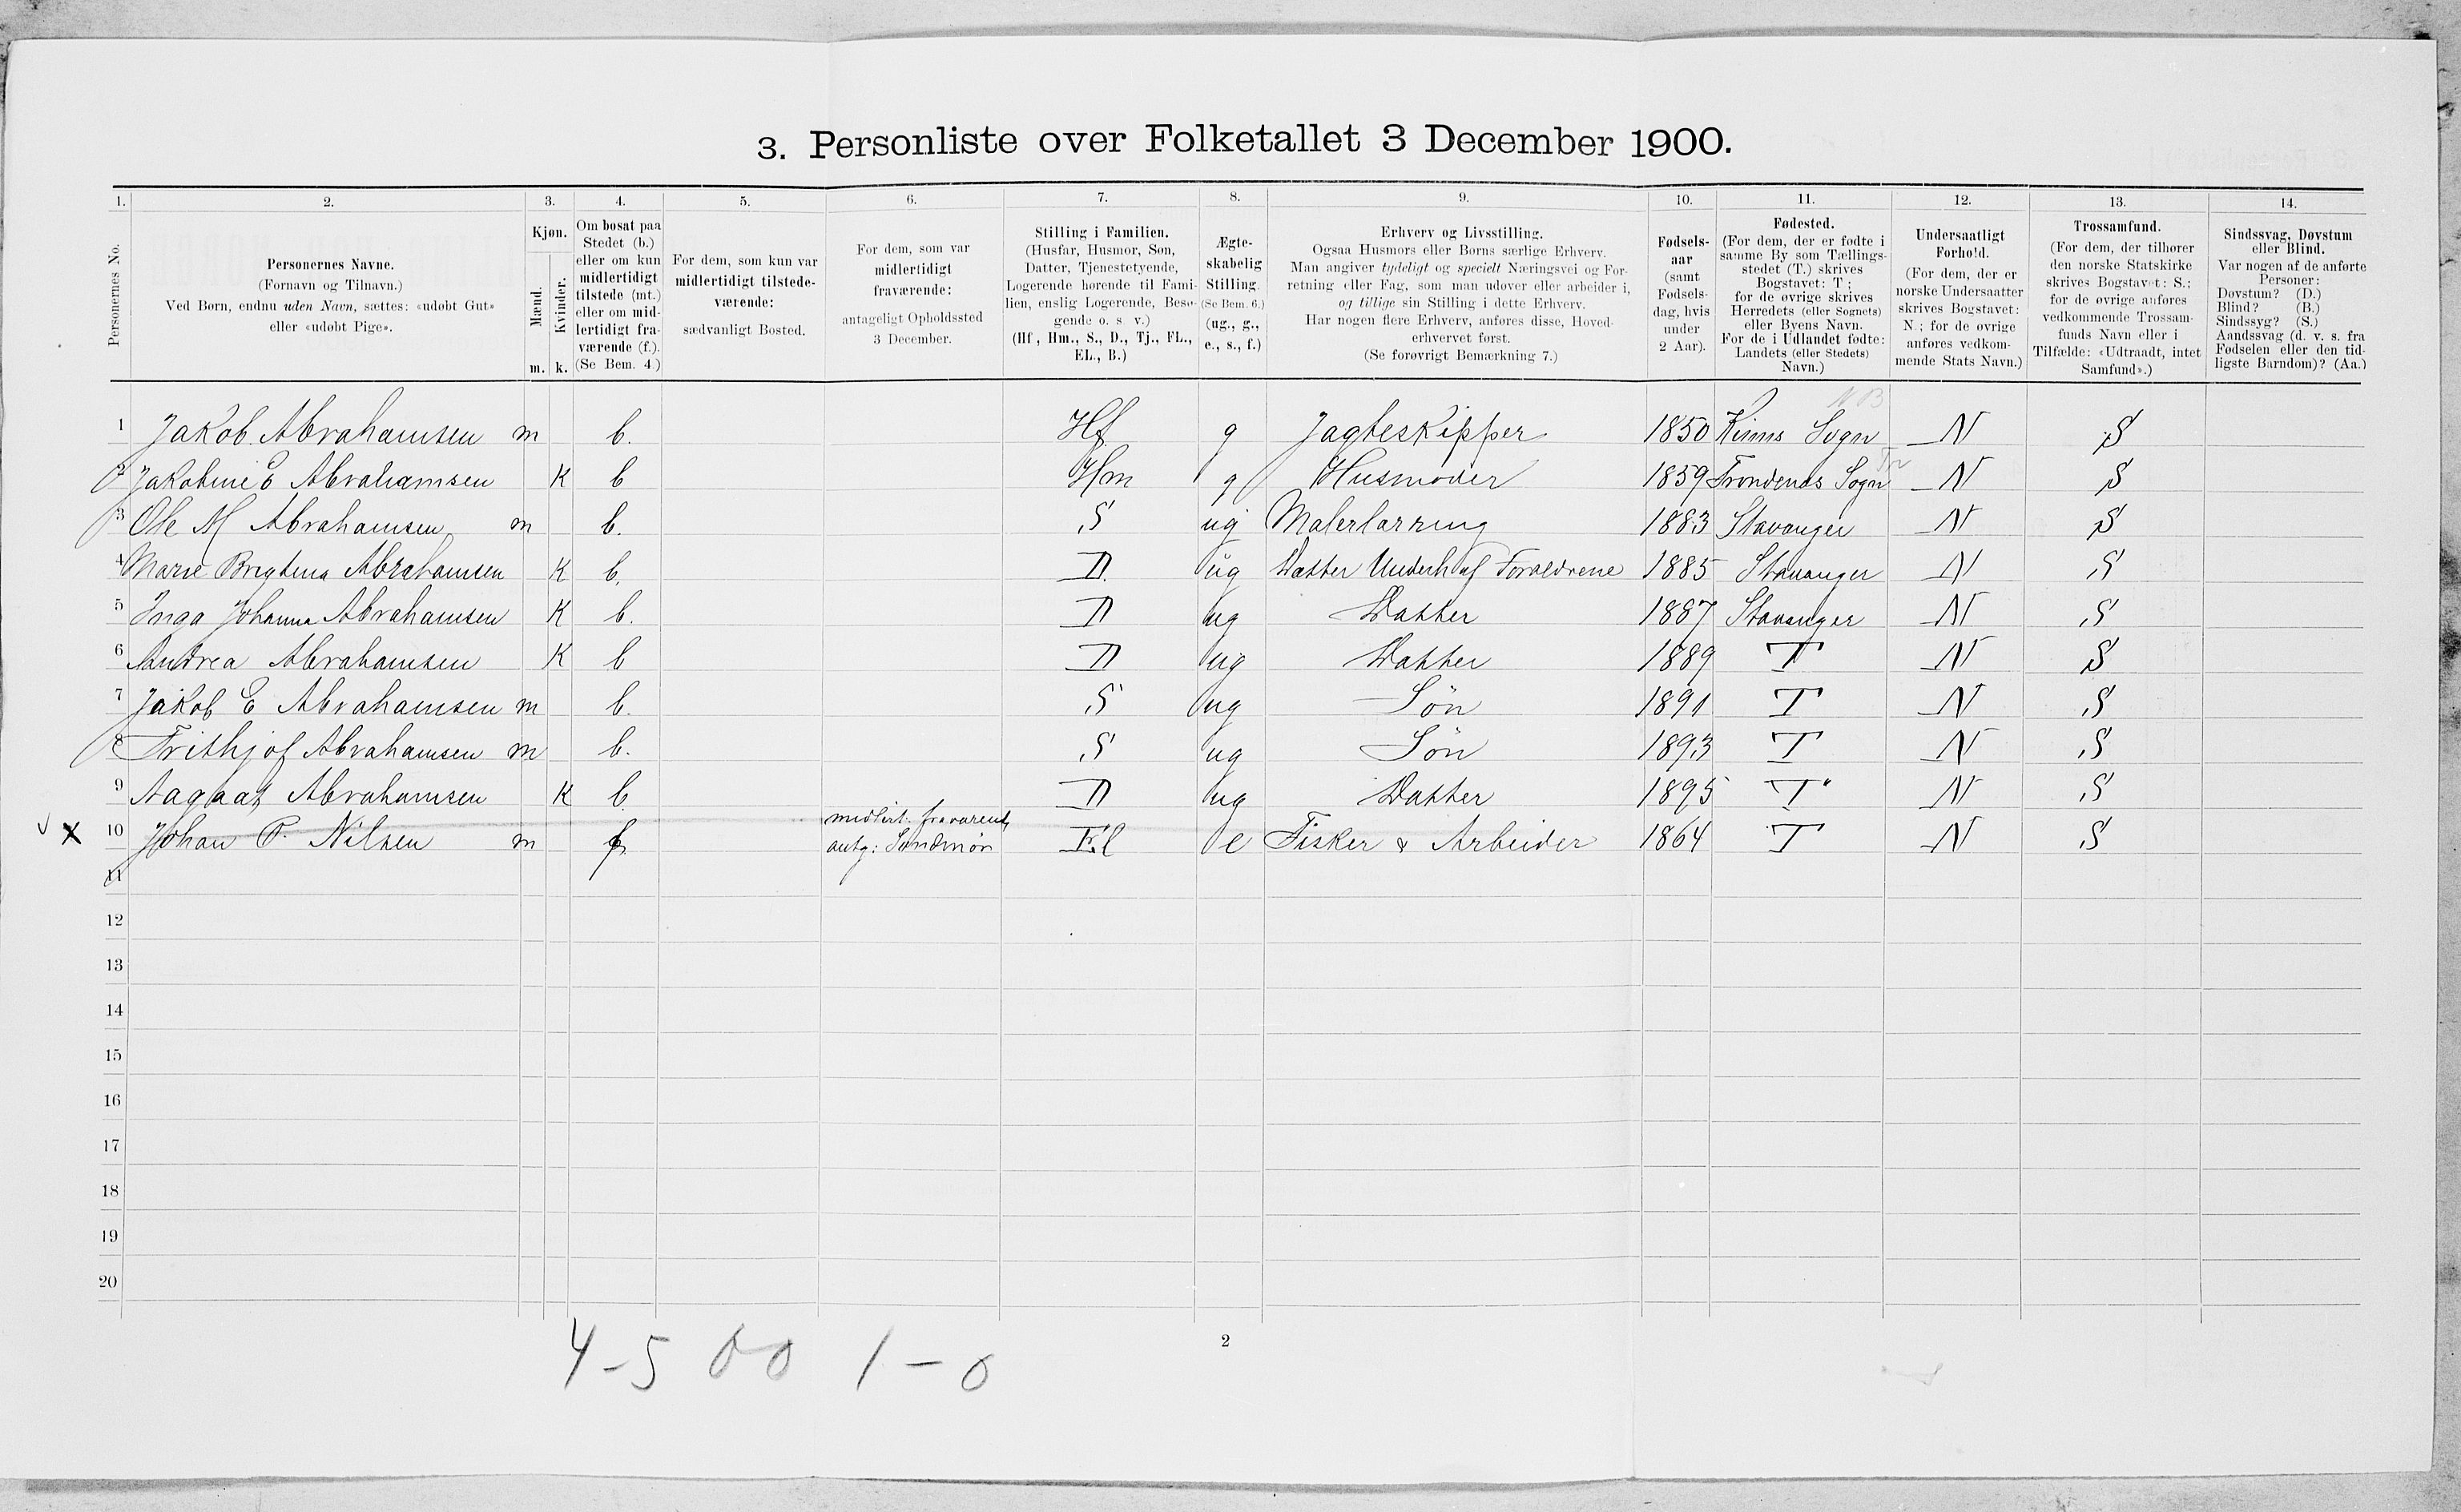 3. Personliste over Folketallet 3 December 1900.
1. 2. 3. 4. 5. 6. 7. 8. 9. 10. 11. 12. 13. 14.
Personernes No.
Personernes Navne.
(Fornavn og Tilnavn.)
Ved Børn, endnu uden Navn, sættes: «udøbt Gut»
eller «udøbt Pige».
Kjøn.
Mænd.
Kvinder.
m. k.
Om bosat paa
Stedet (b.)
eller om kun
midlertidigt
tilstede (mt.)
eller om mid-
lertidigt fra-
værende (f.).
(Se Bem. 4.)
For dem, som kun var
midlertidigt tilstede-
værende:
sædvanligt Bosted.
For dem, som var
midlertidigt
fraværende:
antageligt Opholdssted
3 December.
Stilling i Familien.
(Husfar, Husmor, Søn,
Datter, Tjenestetyende,
Logerende hørende til Fami-
lien, enslig Logerende, Besø-
gende o. s. v.)
(Hf., Hm., S., D., Tj., FL.,
EL., B.)
Ægte-
skabelig
Stilling.
(Se Bem. 6.)
(ug., g.,
e., s., f.)
Erhverv og Livsstilling.
Ogsaa Husmors eller Børns særlige Erhverv.
Man angiver tydeligt og specielt Næringsvei og For-
retning eller Fag, som man udøver eller arbeider i,
og tillige sin Stilling i dette Erhverv.
Har nogen flere Erhverv, anføres disse, Hoved-
erhvervet først.
(Se forøvrigt Bemærkning 7.)
Fødsels-
aar
(samt
Fødsels-
dag, hvis
under
2 Aar).
Fødested.
(For dem, der er fødte i
samme By som Tællings-
stedet (T.) skrives
Bogstavet: T;
for de øvrige skrives
Herredets (eller Sognets)
eller Byens Navn.
For de i Udlandet fødte:
Landets (eller Stedets)
Navn.)
Undersaatligt
Forhold.
(For dem, der er
norske Undersaatter
skrives Bogstavet:
N.; for de øvrige
anføres vedkom-
mende Stats Navn.)
Trossamfund.
(For dem, der tilhører
den norske Statskirke
skrives Bogstavet: S.;
for de øvrige anføres
vedkommende Trossam-
funds Navn eller i
Tilfælde: «Udtraadt, intet
Samfund».)
Sindssvag, Døvstum
eller Blind.
Var nogen af de anførte
Personer:
Døvstum? (D.)
Blind? (B.)
Sindssyg? (S.)
Aandssvag (d. v. s. fra
Fødselen eller den tid-
ligste Barndom)? (Aa.)
1 Jakob Abrahamsen m b. Hf g Jagteskipper 1850 Kinns Sogn N S
2 Jakobine E Abrahamsen K b Hm g Husmoder 1859 Trondenæs Sogn N S
3 Ole M Abrahamsen m b. S ug Malerlærring 1883 Stavanger N S
4 Marie Brigtena Abrahamsen K b. D ug Datter Underh af Foraldrene 1885 Stavanger N S
5 Inga Johanna Abrahamsen K b. D ug Datter 1887 Stavanger N S
6 Andrea Abrahamsen K b D ug Datter 1889 T N S
7 Jakob E Abrahamsen m b. S ug Søn 1891 T N S
8 Frithjof Abrahamsen m b. S ug Søn 1893 T N S
9 Aagaat Abrahamsen K b D ug Datter 1895 T N S
midlert. fraværend
x 10 Johan P. Nilsen m f antg: Sundmør El e Fisker & Arbeider 1864 T N S
11
12
13
14
15
16
17
18
19
20
4-5 00 1-0
2